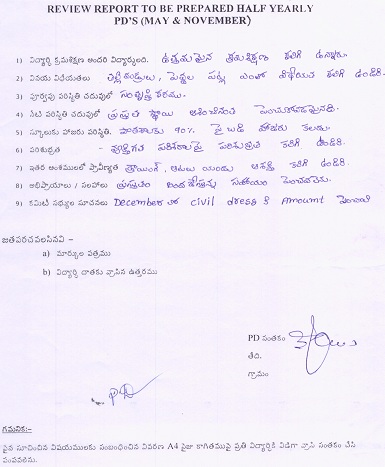 REVIEW REPORT TO BE PREPARED HALF YEARLY
PD'S (MAY & NOVEMBER)
1) విద్యార్థి క్రమశిక్షణ అందరి విద్యార్థులంది. ఉత్తమమైన క్రమశిక్షణ కలిగి ఉన్నారు.
2) వినయ విధేయతలు తల్లిదండ్రులు, పెద్దల పట్ల ఎంతో విధేయత కలిగి ఉండిరి.
3) పూర్వపు పరిస్థితి చదువులో సంతృప్తి కరము.
4) నేటి పరిస్థితి చదువులో ప్రస్తుత స్థాయి ఆశించినంత పెంచుకోవలసినది.
5) స్కూలుకు హాజరు పరిస్థితి. పాఠశాలకు 90% పై బడి హాజరు కలదు.
6) పరిశుభ్రత - వ్యక్తిగత పరిసరాలపై పరిశుభ్రత కలిగి ఉండిరి.
7) ఇతర అంశములలో ప్రావీణ్యత డ్రాయింగ్, ఆటలు యందు ఆసక్తి కలిగి ఉండిరి.
8) అభిప్రాయాలు / సలహాలు ప్రస్తుతం సహాయం పెంచవలెను.
9) కమిటీ సభ్యుల సూచనలు December లో civil dress కి Amount పెంచాలి
జతపరచవలసినవి -
a) మార్కుల పత్రము
b) విద్యార్థి దాతకు వ్రాసిన ఉత్తరము
PD సంతకం
తేది.
గ్రామం
PD
గమనిక:-
పైన సూచించిన విషయములకు సంబంధించిన వివరణ A4 సైజు కాగితముపై ప్రతి విద్యార్థికి విడిగా వ్రాసి సంతకం చేసి
పంపవలెను.